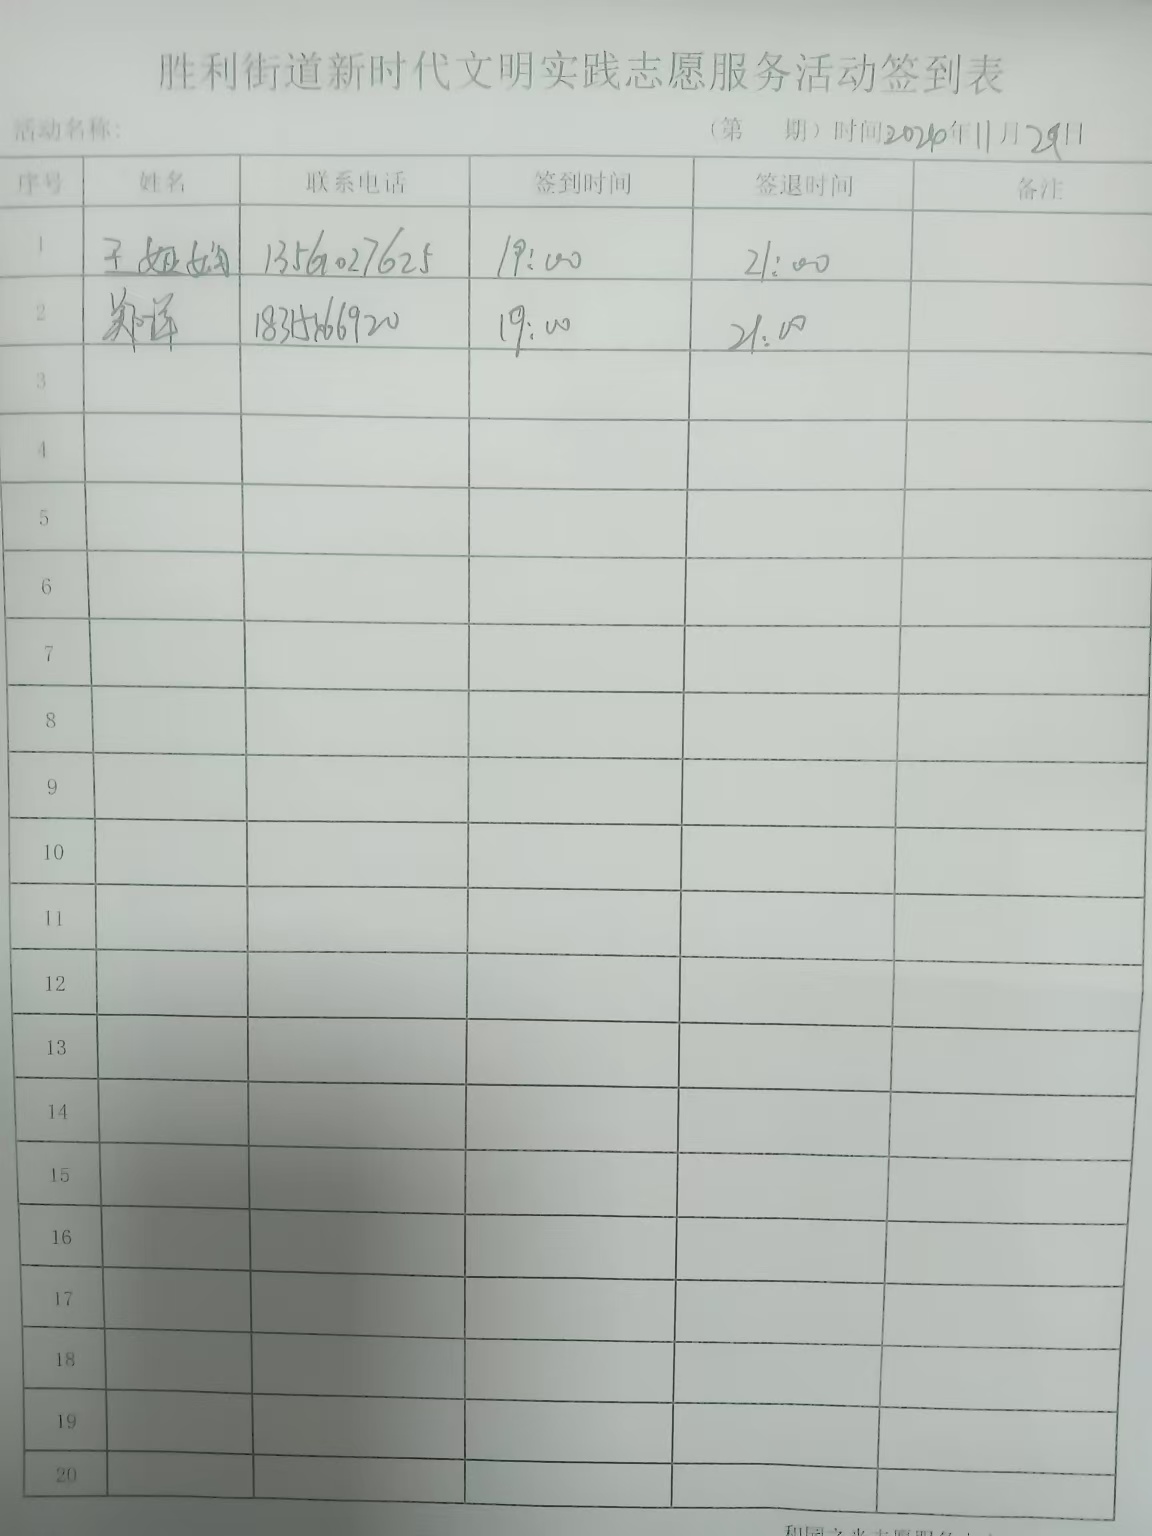 胜利街道新时代文明实践志愿服务活动签到表
活动名称: （第 期）时间2024年11月29日
序号 姓名 联系电话 签到时间 签退时间 备注
1 王 19:00 21:00
2 郑洋 19:00 21:00
3
4
5
6
7
8
9
10
11
12
13
14
15
16
17
18
19
20